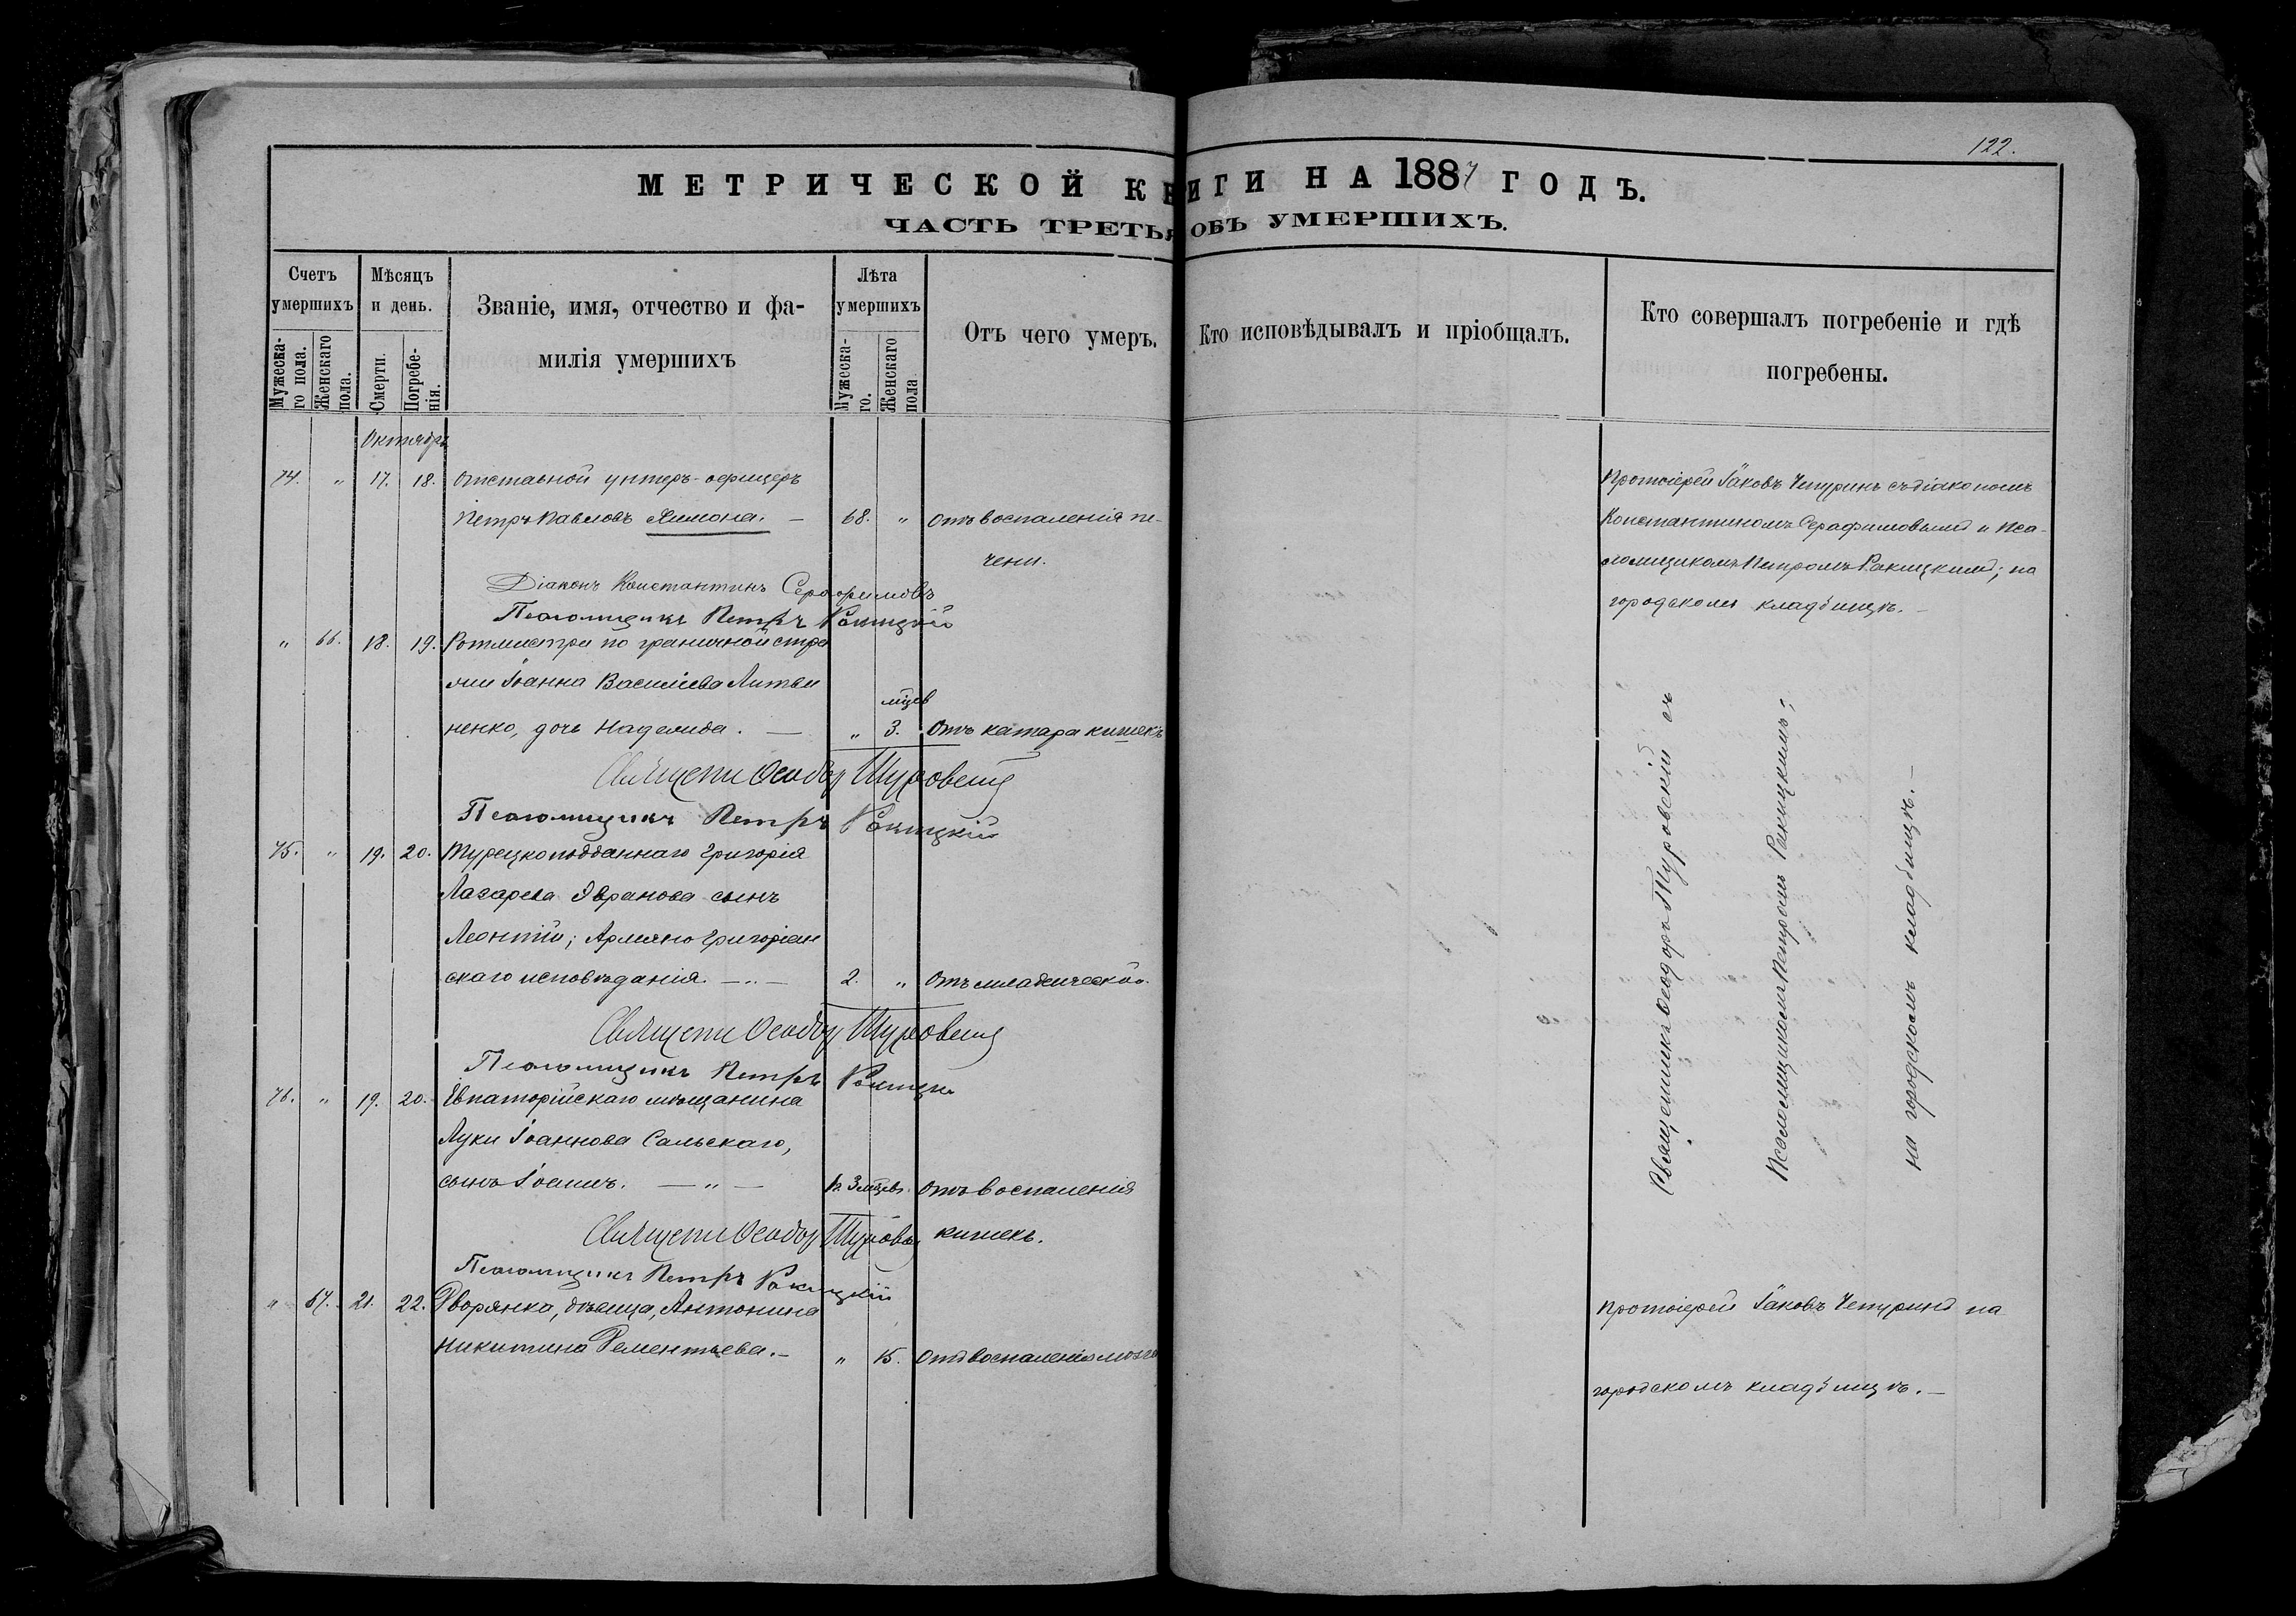 122.
МЕТРИЧЕСКОЙ КНИГИ НА 1887 ГОДЪ.
ЧАСТЬ ТРЕТЬЯ ОБЪ УМЕРШИХЪ.
Счетъ умершихъ
Мужеска-го пола.
Женскаго пола.
Мѣсяцъ и день.
Смерти.
Погребе-нія.
Званіе, имя, отчество и фа-
милія умершихъ
Лѣта умершихъ
Мужеска-го.
Женскаго пола
Отъ чего умеръ.
Кто исповѣдывалъ и пріобщалъ.
Кто совершалъ погребеніе и гдѣ
погребены.
Октябрь
74. " 17. 18. Отставной унтеръ-офицеръ
Петръ Павловъ Лимона. — 68. " Отъ воспаленія пе-
чени.
Протоіерей Іаковъ Чепуринъ съ діакономъ
Константиномъ Серафимовымъ и Пса-
ломщикомъ Петромъ Ракицкимъ; на
городскомъ кладбищѣ. —
Діаконъ Константинъ Серафимовъ
Псаломщикъ Петръ Ракицкій
" 66. 18. 19. Ротмистра по граничной стра
жи Іоанна Васильева Литви
мѣсв
ненко, дочь Надежда. — " 3. Отъ катара кишекъ
Священн Ѳеодоръ Туровскій
Псаломщикъ Петръ Ракицкій
75. " 19. 20. Турецкоподданнаго Григорія
Лазарева Явранова сынъ
Леонтій; Армяно Григоріан
скаго исповѣданія. — " — 2. " Отъ младенческой.
Священн Ѳеодоръ Туровскій
Псаломщикъ Петръ Ракицкій
76. " 19. 20. Евпаторійскаго мѣщанина
Луки Іоаннова Сальскаго,
сынъ Іоаннъ. — " — Отъ воспаленія
кишекъ.
Священн Ѳеодоръ Туровскій
Псаломщикъ Петръ Ракицкій
Священникъ Ѳеодоръ Туровскій съ
Псаломщикомъ Петромъ Ракицкимъ;
на городскомъ кладбищѣ. —
" 67. 21. 22. Дворянка, дѣвица, Антонина
Никитина Дементьева. — " 15. Отъ воспаленія мозга
Протоіерей Іаковъ Чепуринъ на
городскомъ кладбищѣ. —